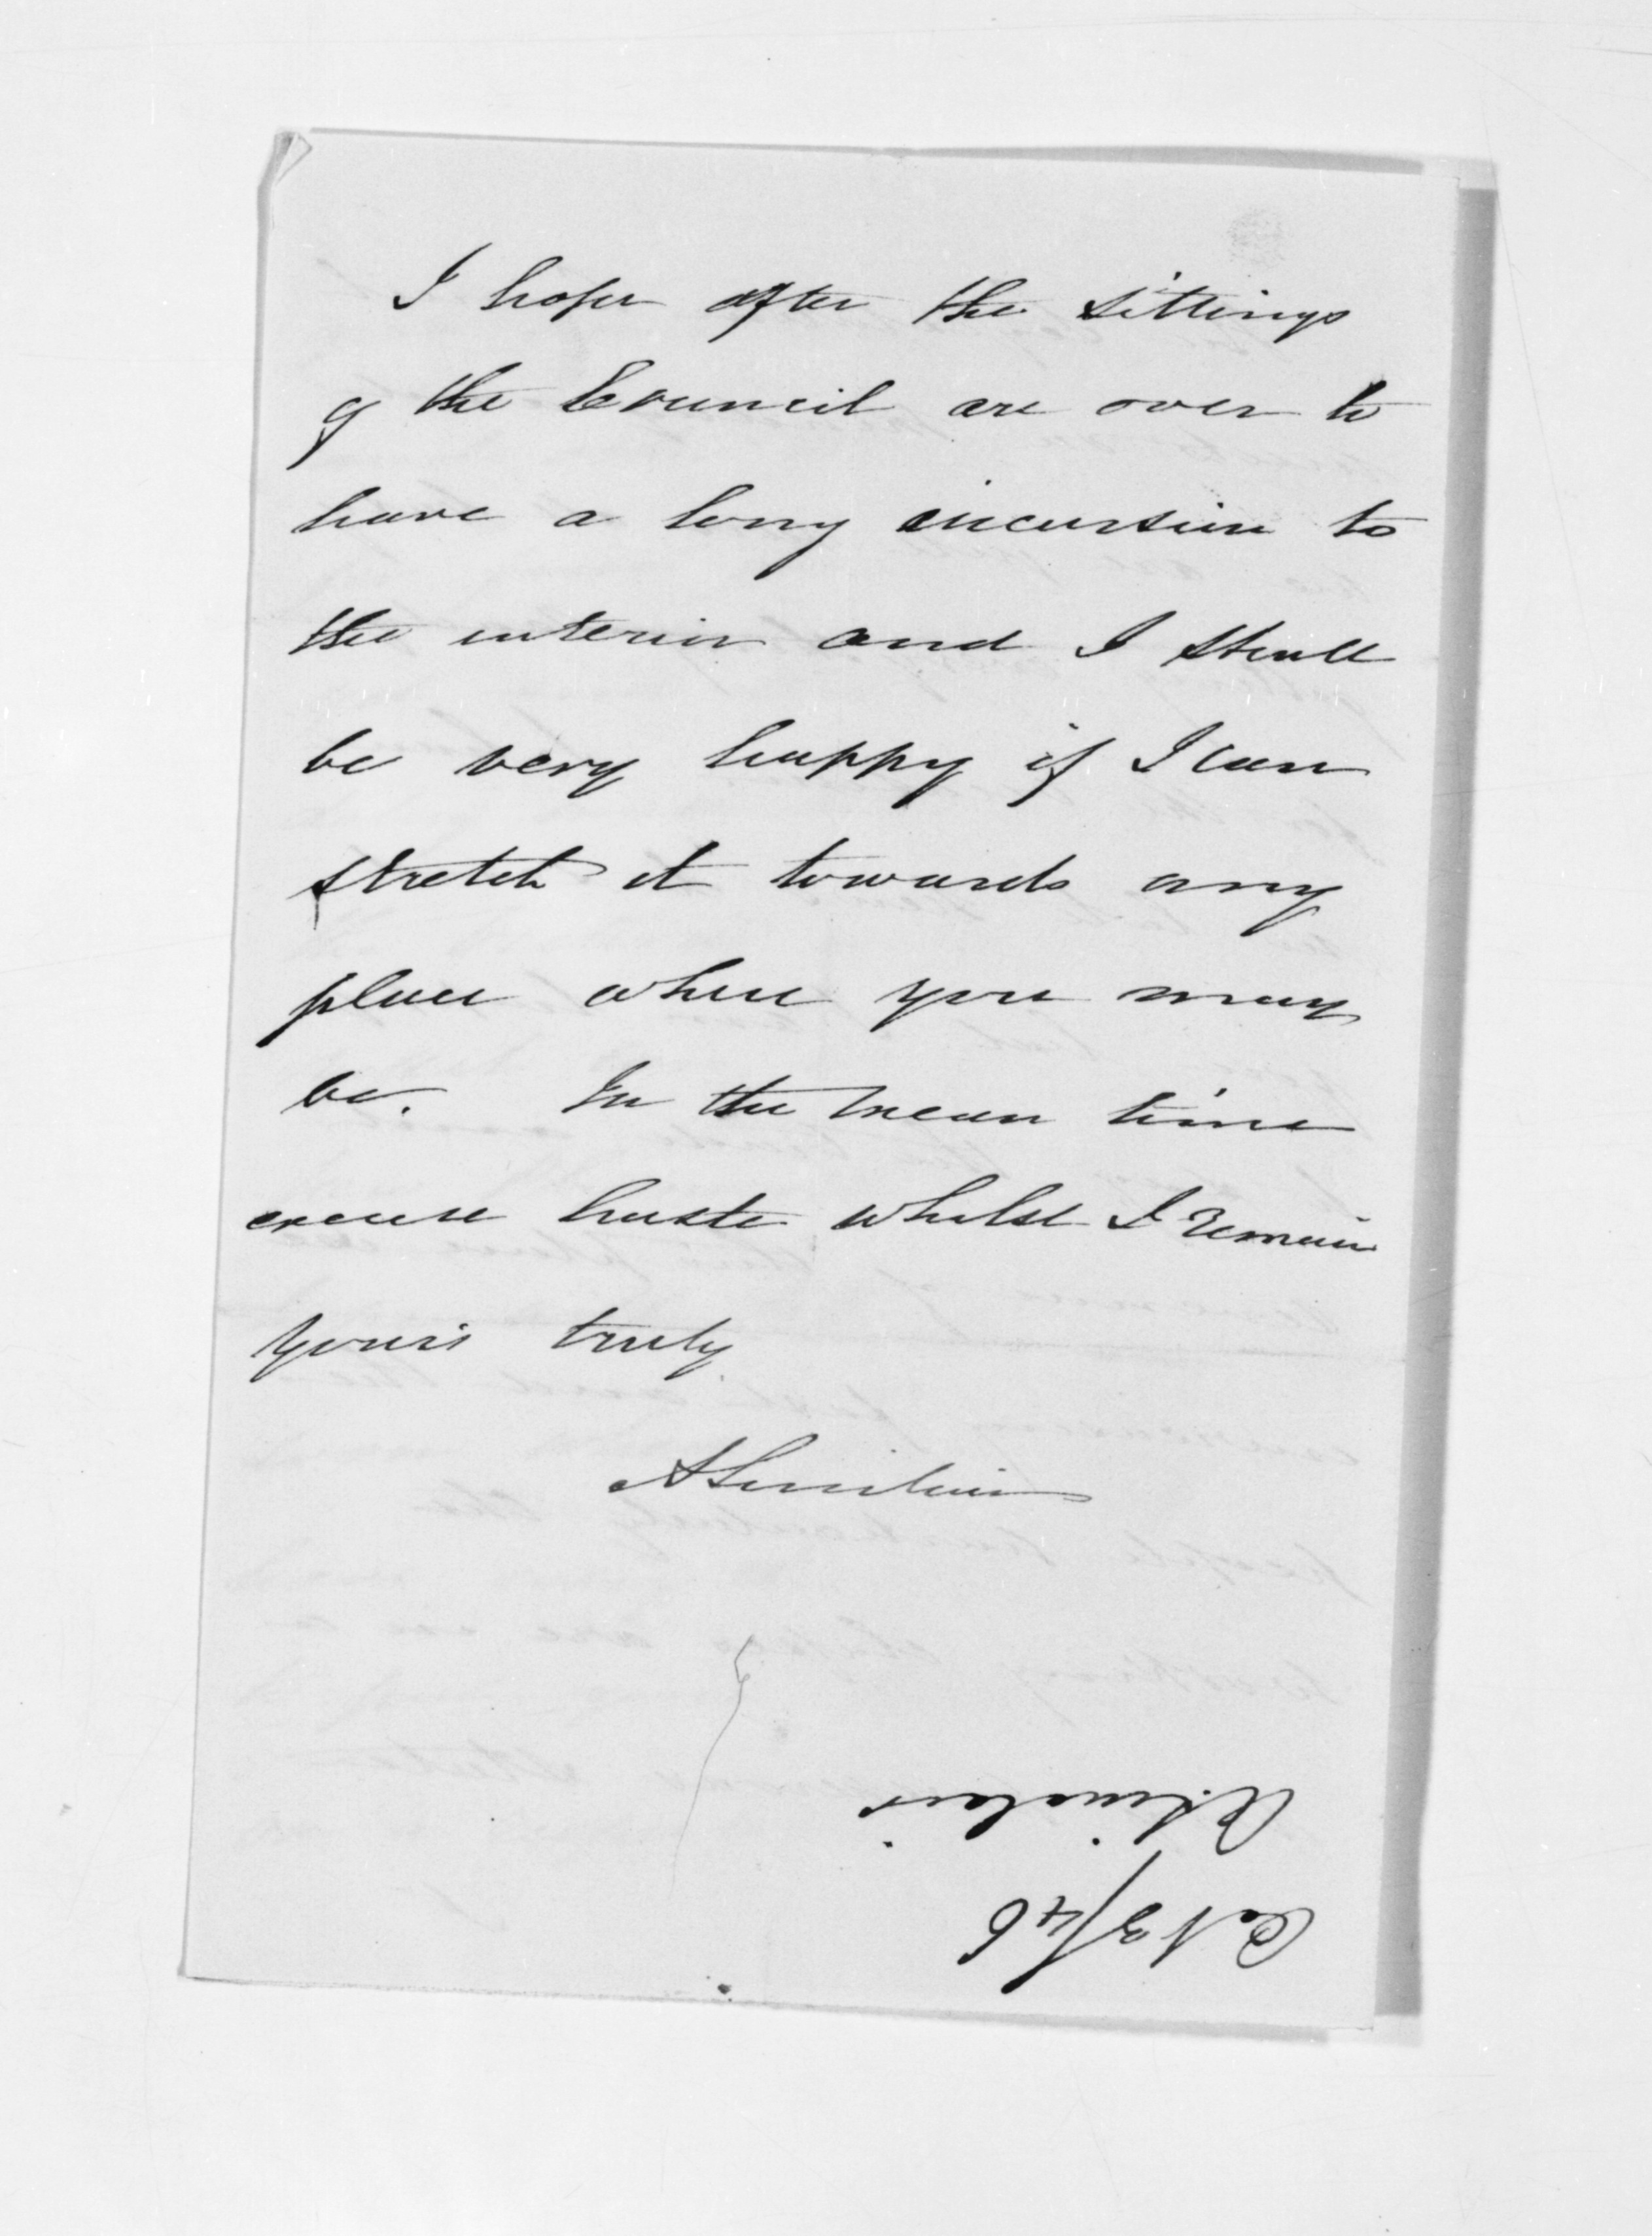 I hope after the sittings
of the Council are over to
have a long incursion to
the interior and I shall
be very happy if I can
stretch it towards any
place where you may
be. In the mean time
excuse haste whilst I remain
yours truly
ASinclair
A. Sinclair